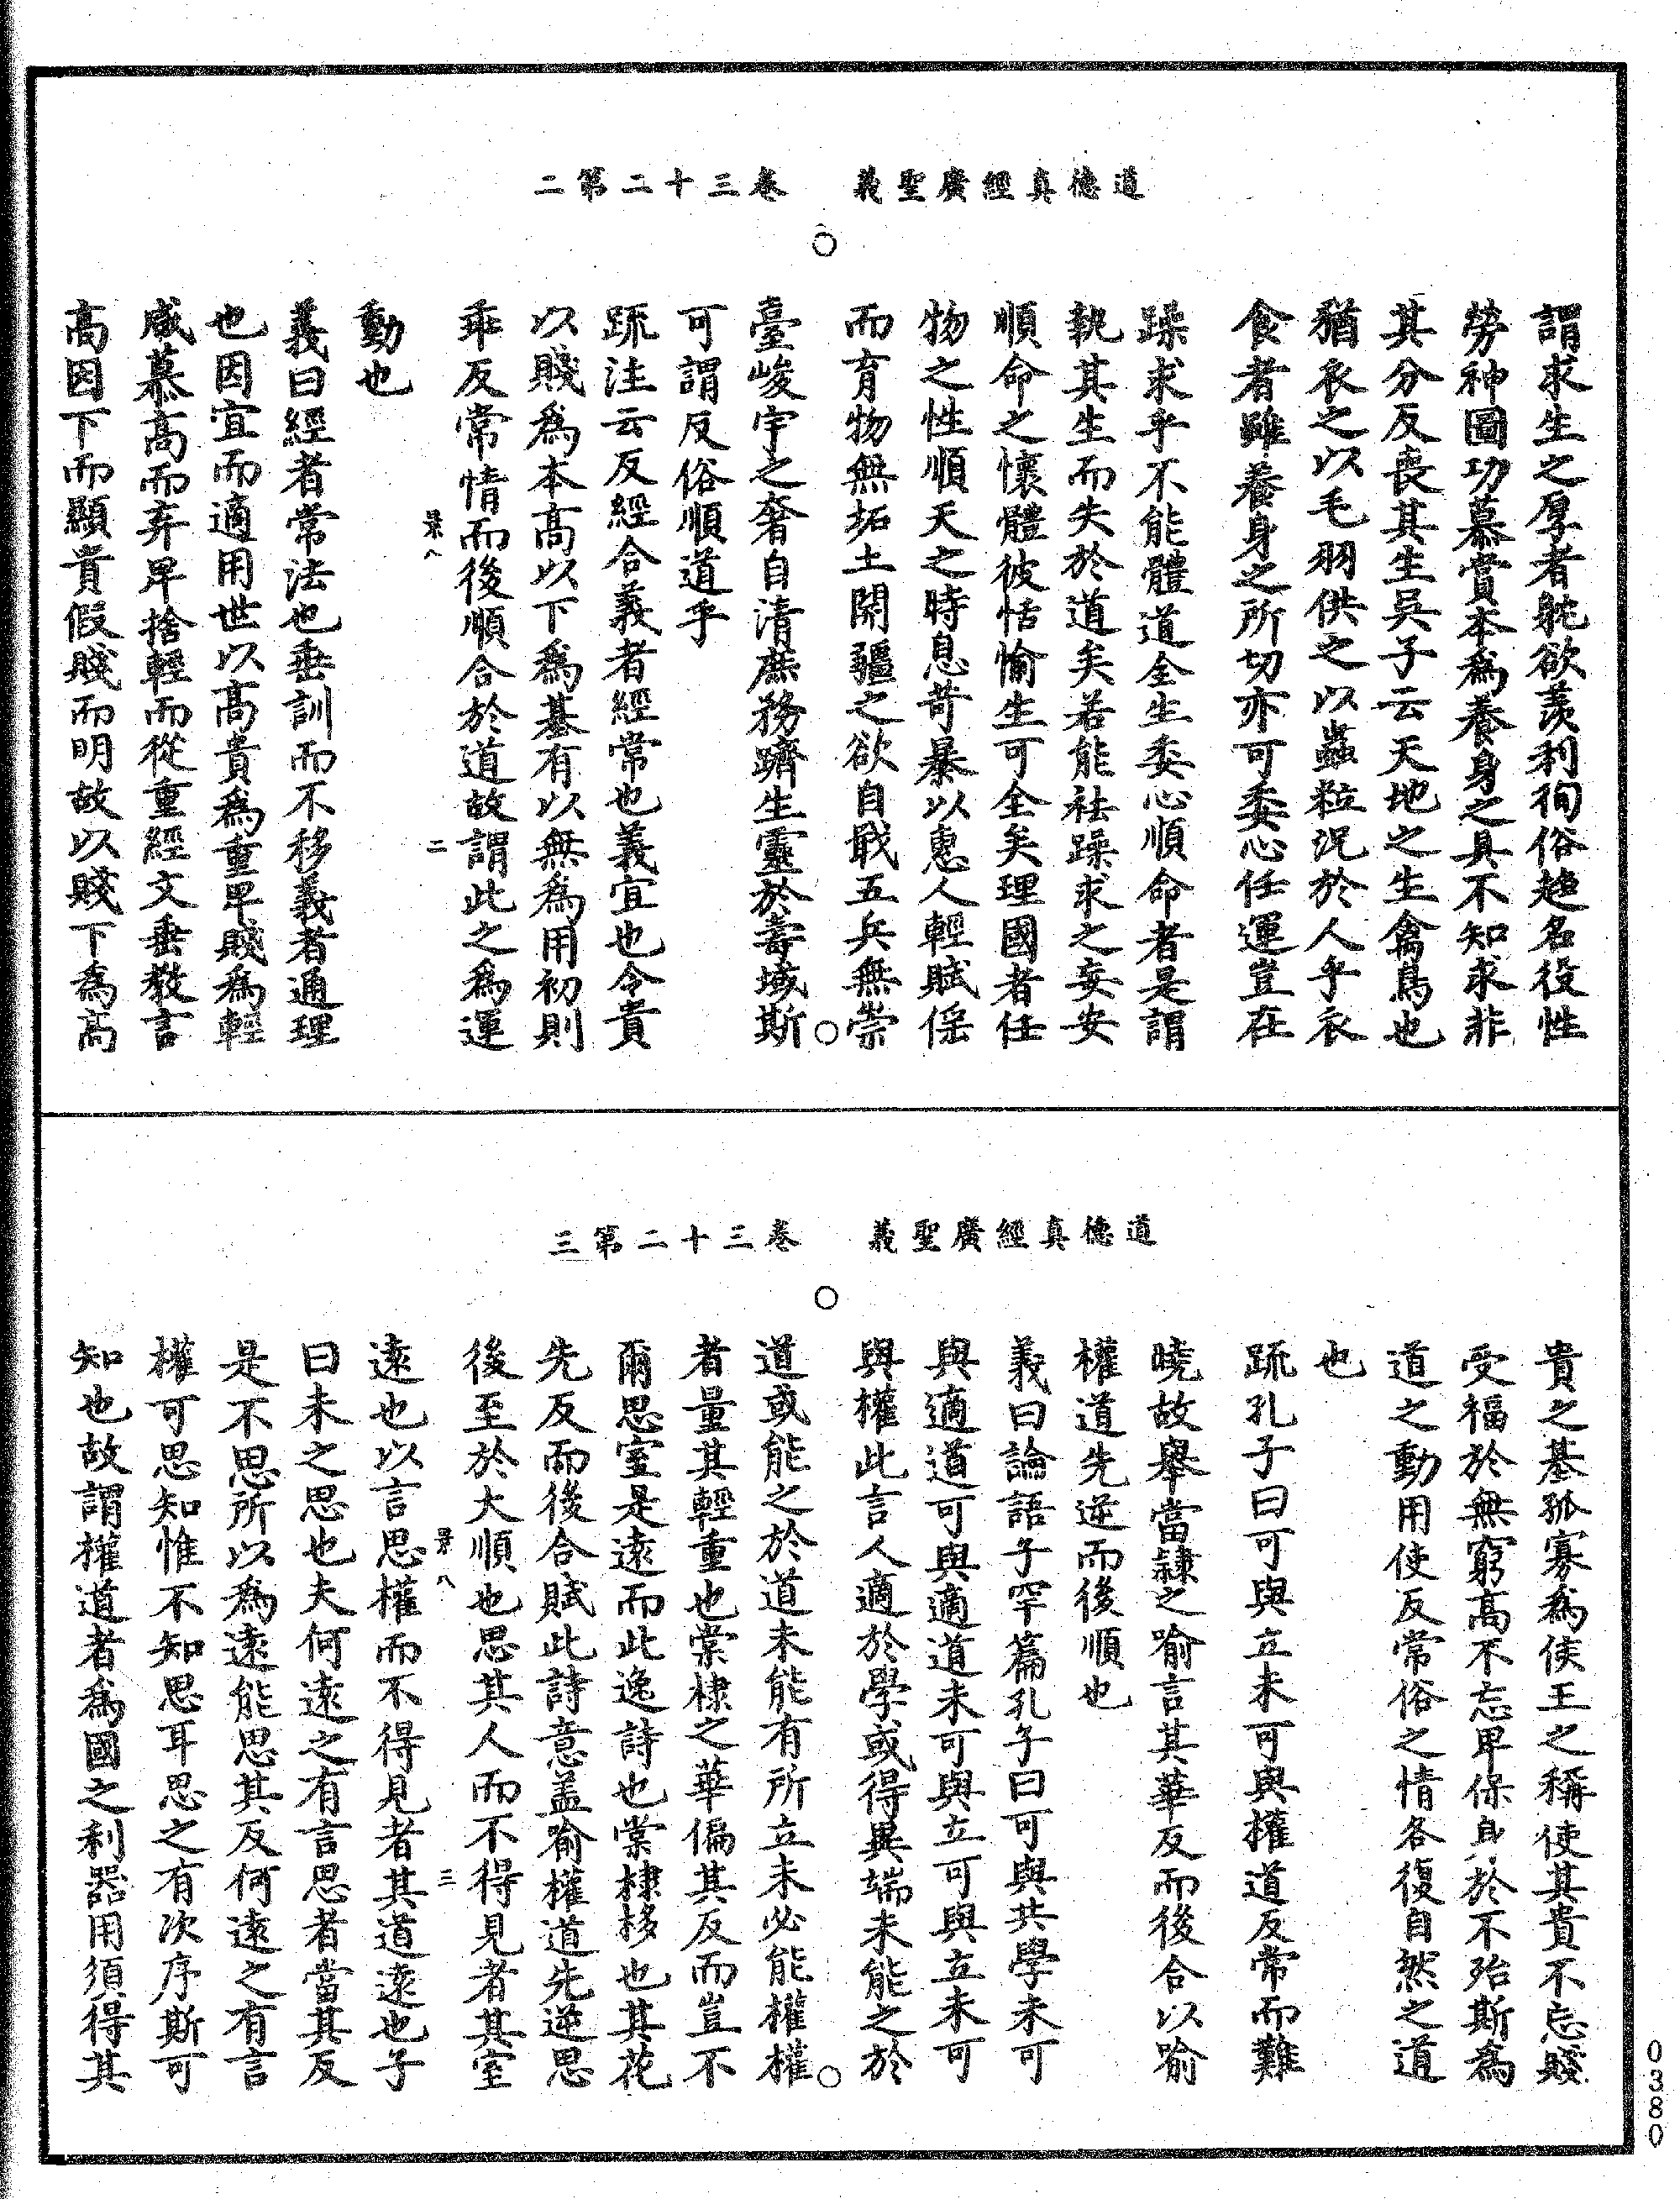 道德真經廣聖義　卷三十二第二
謂求生之厚者躭欲羨利徇俗趍名役性
勞神圖功慕賞本為養身之具不知求非
其分反喪其生吳子云天地之生禽鳥也
猶衣之以毛羽供之以蟲粒況於人乎衣
食者雖養身之所切亦可委心任運豈在
躁求乎不能體道全生委心順命者是謂
執其生而失於道矣若能祛躁求之妄安
順命之懷體彼恬愉生可全矣理國者任
物之性順天之時息苛暴以惠人輕賦傜
而育物無拓土開疆之欲自戢五兵無崇
臺峻宇之奢自清庶務躋生靈於壽域斯
可謂反俗順道乎
疏注云反經合義者經常也義宜也令貴
以賤為本高以下為基有以無為用初則
乖反常情而後順合於道故謂此之為運
景八　二
動也
義曰經者常法也垂訓而不移義者通理
也因宜而適用世以高貴為重卑賤為輕
咸慕高而弃卑捨輕而從重經文垂教言
高因下而顯貴假賤而明故以賤下為高
道德真經廣聖義　卷三十二第三
貴之基孤寡為侯王之稱使其貴不忘賤
受福於無窮高不忘卑保身於不殆斯為
道之動用使反常俗之情各復自然之道
也
疏孔子曰可與立未可與權道反常而難
曉故舉當隸之喻言其華反而後合以喻
權道先逆而後順也
義曰論語子罕篇孔子曰可與共學未可
與適道可與適道未可與立可與立未可
與權此言人適於學或得異端未能之於
道或能之於道未能有所立未必能權權
者量其輕重也棠棣之華偏其反而豈不
爾思室是遠而此逸詩也棠棣栘也其花
先反而後合賦此詩意盖喻權道先逆思
後至於大順也思其人而不得見者其室
景八　三
遠也以言思權而不得見者其道遠也子
曰未之思也夫何遠之有言思者當其反
是不思所以為遠能思其反何遠之有言
權可思知惟不知思耳思之有次序斯可
知也故謂權道者為國之利器用須得其
0380